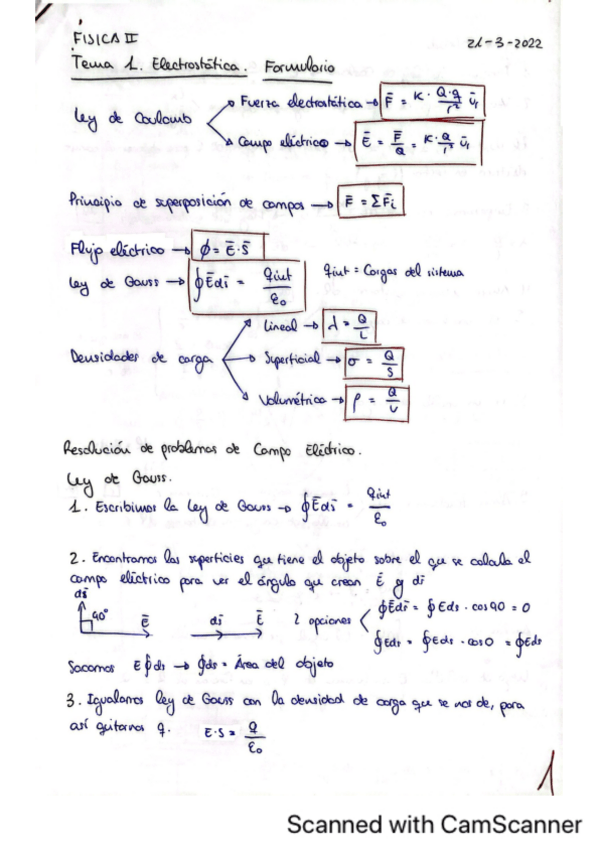 FISICA II
21-3-2022
Tema 1. Electrostática. Formulario
Ley de Coulomb
Fuerza electrostática → F̄ = K · Q·q / r² ūr
Campo eléctrico → Ē = F̄/Q = K·Q/r² ūr
Principio de superposición de campos → F̄ = ΣF̄i
Flujo eléctrico → ϕ = Ē·S̄
Ley de Gauss → ∮Ēds̄ = qint/ε₀
qint = Cargas del sistema
Densidades de carga
Lineal → λ = Q/L
Superficial → σ = Q/S
Volumétrica → ρ = Q/V
Resolución de problemas de Campo Eléctrico.
Ley de Gauss.
1. Escribimos la Ley de Gauss → ∮Ēds̄ = qint/ε₀
2. Encontramos las superficies que tiene el objeto sobre el que se calcula el
campo eléctrico para ver el ángulo que crean Ē y ds̄
ds̄
90°
ē
ds̄
Ē
2 opciones
∮Ēds̄ = ∮Eds · cos90 = 0
∮Eds = ∮Eds · cos0 = ∮Eds
Sacamos E∮ds → ∮ds = Área del objeto
3. Igualamos ley de Gauss con la densidad de carga que se nos de, para
así quitarnos q. E·S = Q/ε₀
1
Scanned with CamScanner